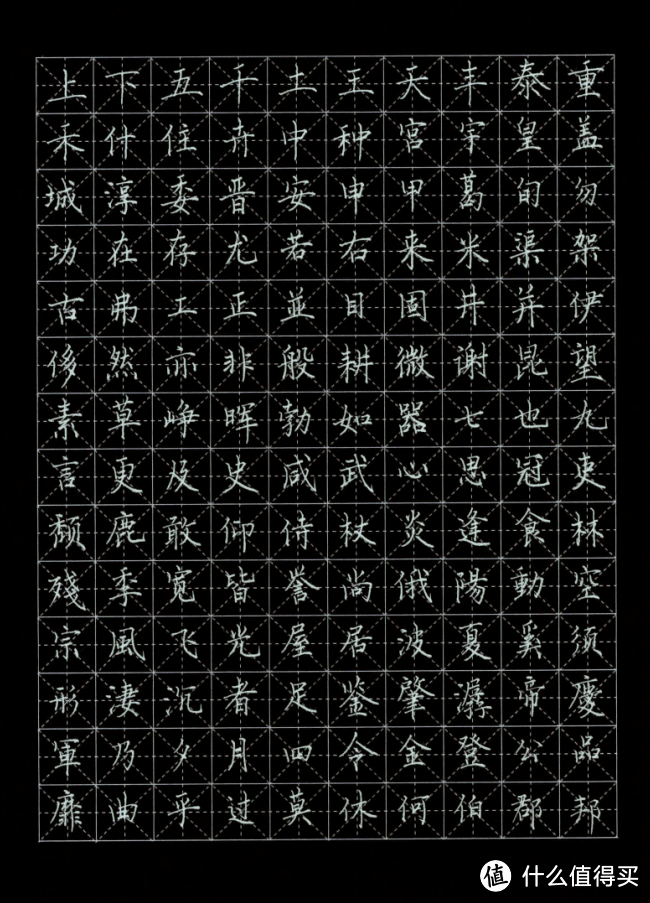 上下五千土王天丰泰重
禾什住卉中种宮宇皇盖
城淳委晋安申甲葛旬勿
功在存尤若右来米渠架
古弗工正並目固井并伊
侈然亦非般耕微谢昆望
素草峥晖勃如器七也九
言更及史咸武心思冠吏
颓鹿敢仰侍杖炎逢食林
殘季宽皆誉尚俄陽動空
宗風飞光屋居波夏奚须
形淒沉者足鉴肇潺帝慶
軍乃夕月四令金登公品
靡曲乎过莫休何伯郡邦
值 什么值得买